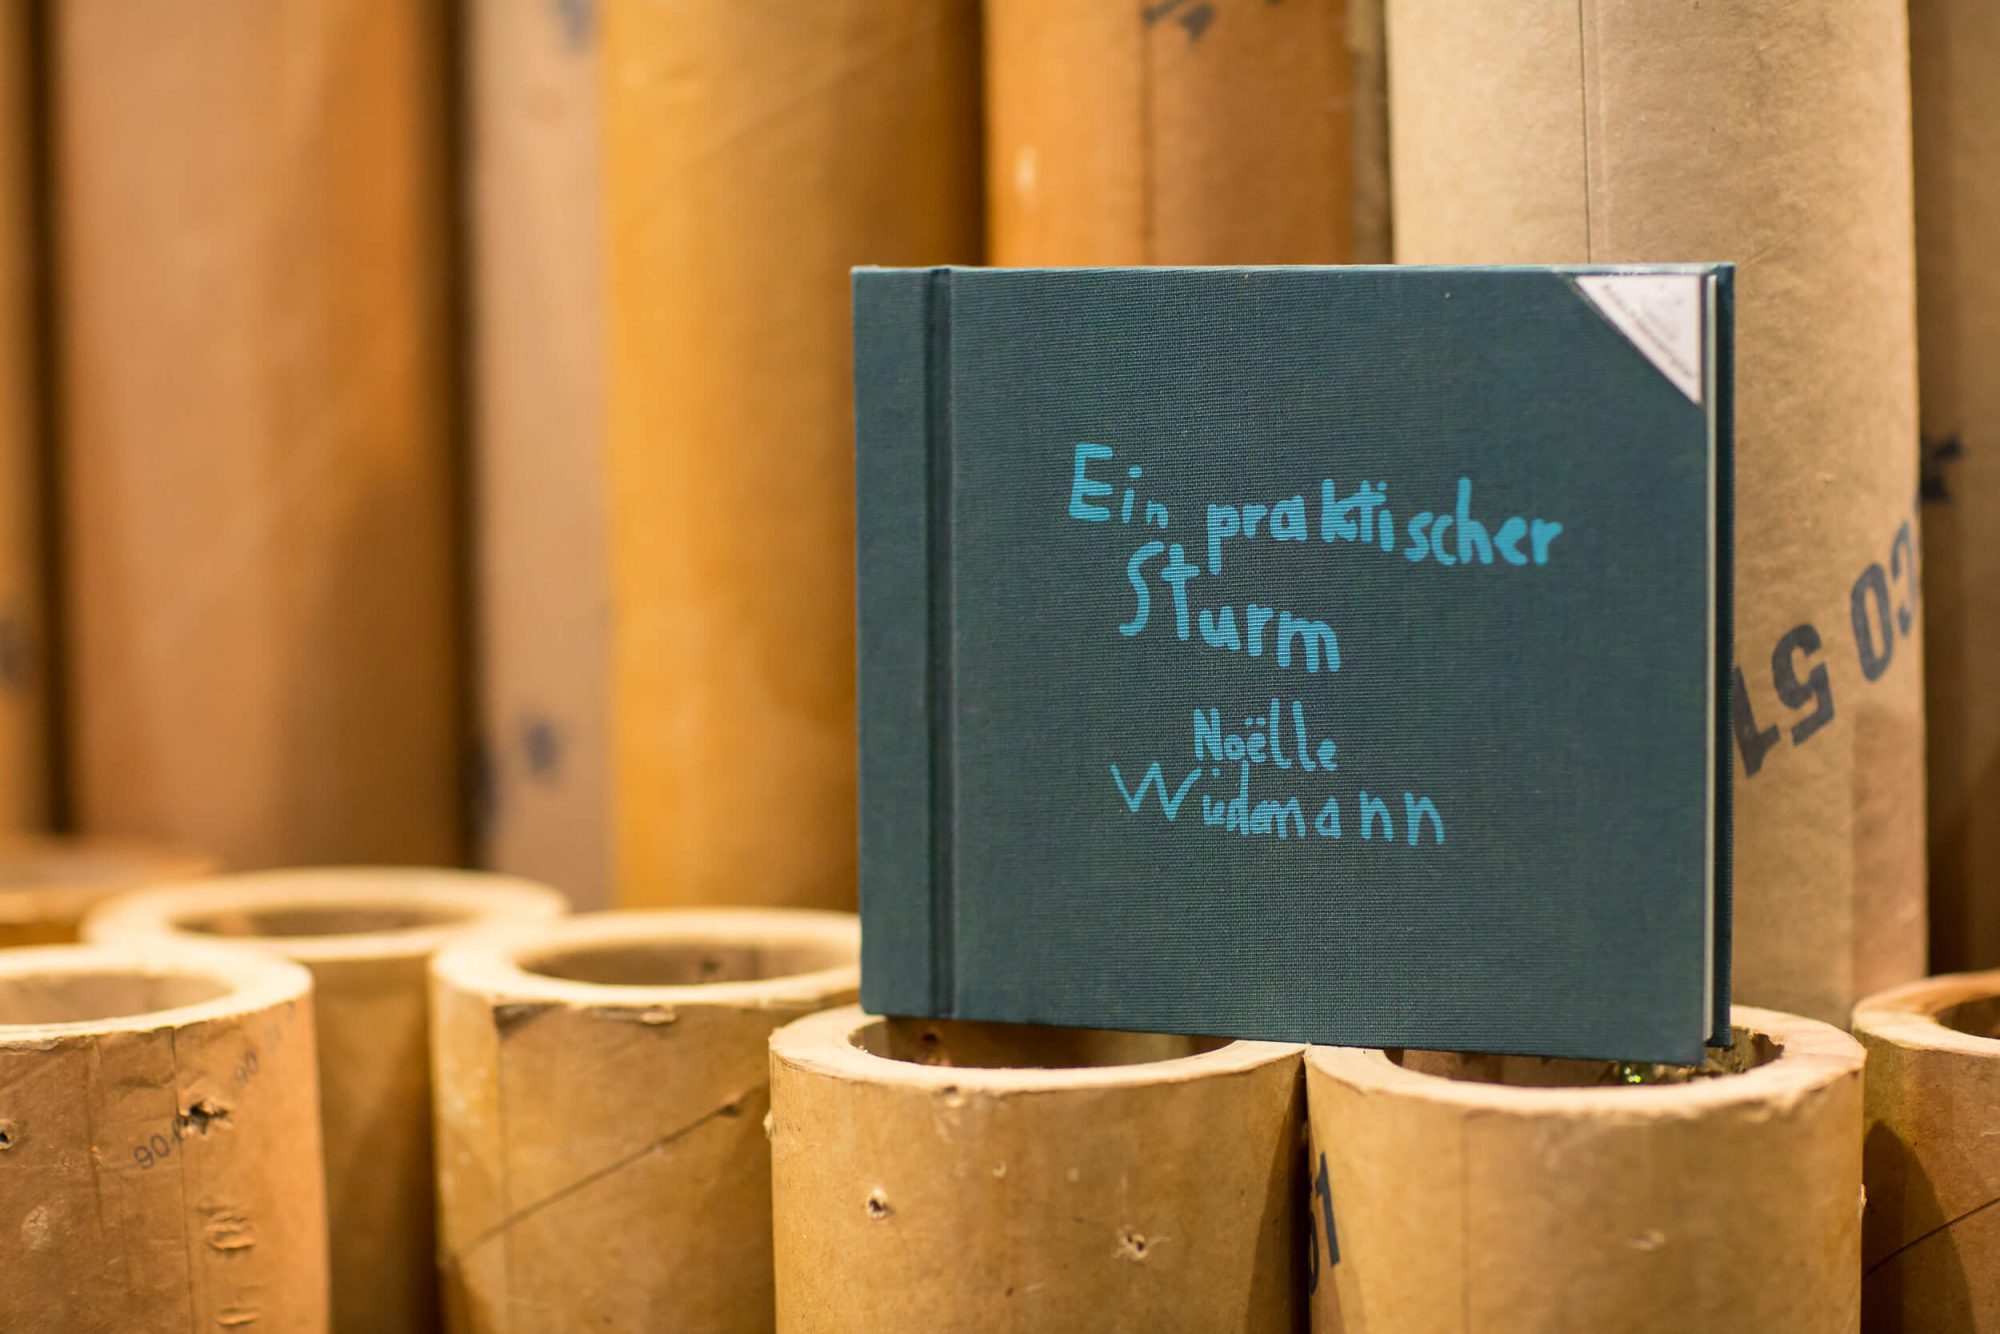 Ein praktischer
Sturm
Noëlle
Wiedemann
90
90
51